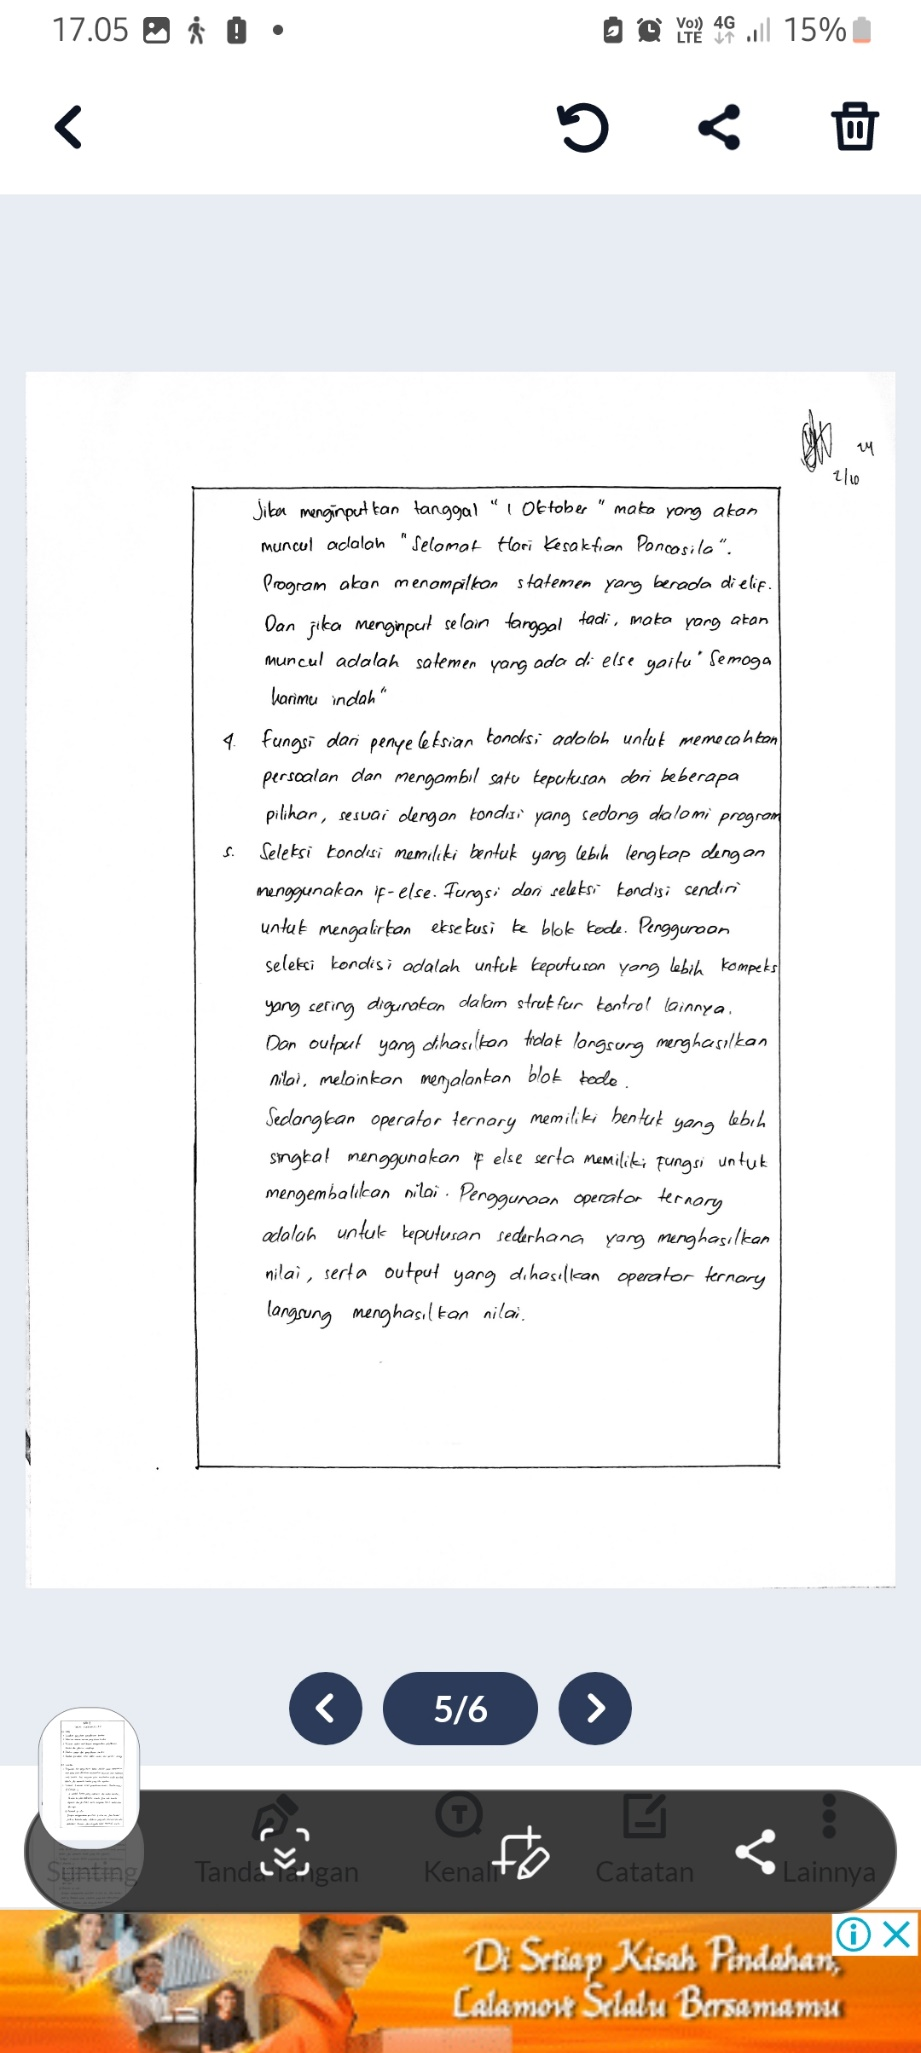 17.05
Vo)) LTE 4G 15%
24
2/10
Jika menginputkan tanggal " 1 Oktober " maka yang akan
muncul adalah "Selamat Hari Kesaktian Pancasila".
Program akan menampilkan statemen yang berada di elif.
Dan jika menginput selain tanggal tadi, maka yang akan
muncul adalah satemen yang ada di else yaitu " Semoga
harimu indah"
4. Fungsi dari penyeleksian kondisi adalah untuk memecahkan
persoalan dan mengambil satu keputusan dari beberapa
pilihan, sesuai dengan kondisi yang sedang dialami program
5. Seleksi kondisi memiliki bentuk yang lebih lengkap dengan
menggunakan if-else. Fungsi dari seleksi kondisi sendiri
untuk mengalirkan eksekusi ke blok kode. Penggunaan
seleksi kondisi adalah untuk keputusan yang lebih kompeks
yang sering digunakan dalam struktur kontrol lainnya.
Dan output yang dihasilkan tidak langsung menghasilkan
nilai, melainkan menjalankan blok kode.
Sedangkan operator ternary memiliki bentuk yang lebih
singkat menggunakan if else serta memiliki fungsi untuk
mengembalikan nilai. Penggunaan operator ternary
adalah untuk keputusan sederhana yang menghasilkan
nilai, serta output yang dihasilkan operator ternary
langsung menghasilkan nilai.
5/6
Sunting Tanda Tangan Kenali Catatan Lainnya
Di Setiap Kisah Pindahan,
Lalamove Selalu Bersamamu